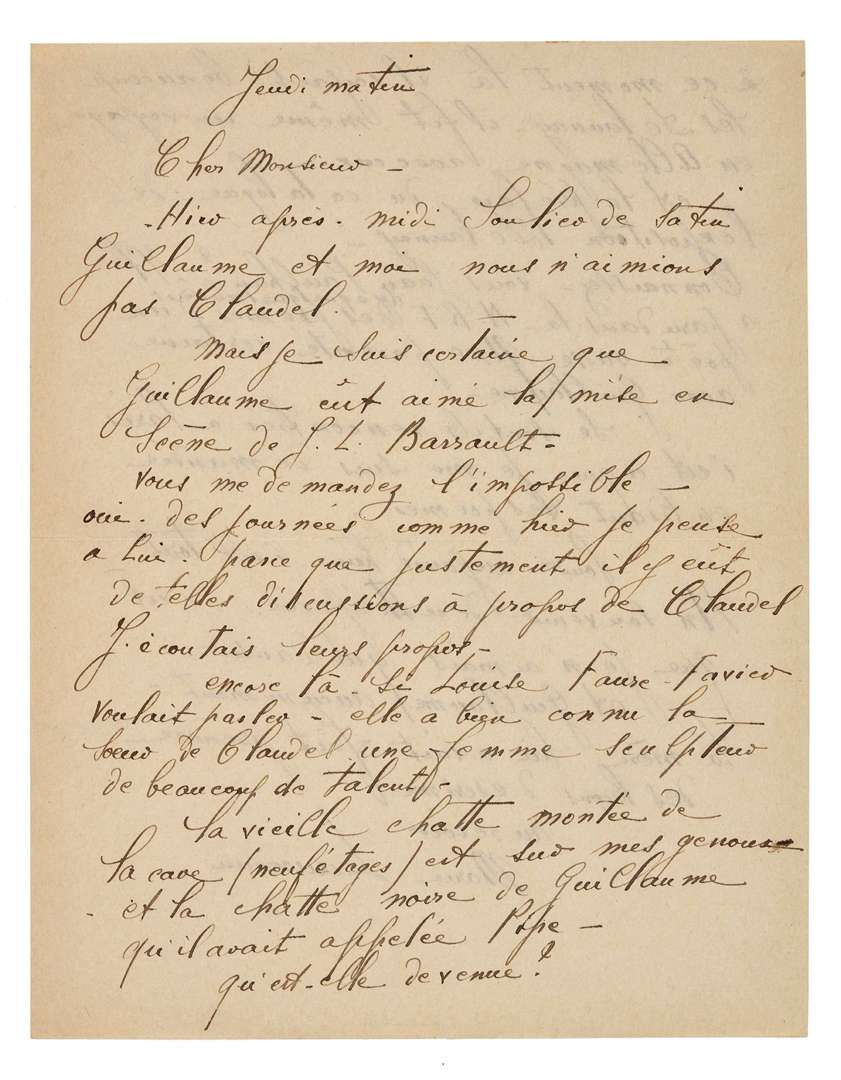 Jeudi matin
Cher Monsieur -
Hier après-midi Soulier de satin
Guillaume et moi nous n'aimions
pas Claudel.
Mais je suis certaine que
Guillaume eût aimé la mise en
Scène de J. L. Barrault -
Vous me demandez l'impossible -
oui. des journées comme hier je pense
a Lui. parce que justement il y eût
de telles discussions à propos de Claudel
J'écoutais leurs propos -
encore là. Si Louise Faure-Favier
voulait parler - elle a bien connu la
soeur de Claudel une femme sculpteur
de beaucoup de talent -
la vieille chatte montée de
la cave (neuf étages) est sur mes genoux
et la chatte noire de Guillaume
qu'il avait appelée Pipe -
qu'est-elle devenue ?